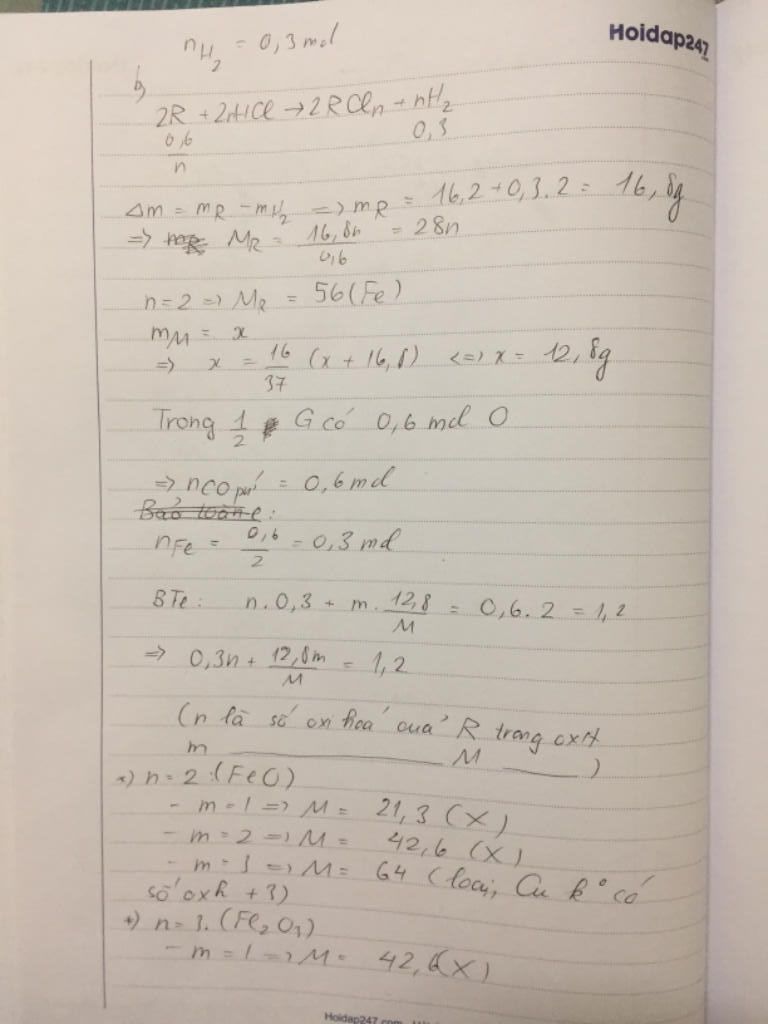 Hoidap247
nH2 = 0,3 mol
b)
2R + 2nHCl → 2RCln + nH2
0,6/n 0,3
Δm = mR - mH2 => mR = 16,2 + 0,3.2 = 16,8g
=> MR = 16,8n/0,6 = 28n
n=2 => MR = 56 (Fe)
mM = x
=> x = 16/37 (x + 16,8) <=> x = 12,8g
Trong 1/2 G có 0,6 mol O
=> nCO pứ = 0,6 mol
Bảo toàn e:
nFe = 0,6/2 = 0,3 mol
BTe: n.0,3 + m.12,8/M = 0,6.2 = 1,2
=> 0,3n + 12,8m/M = 1,2
(n là số oxi hoá của R trong oxit
m ——— M ——— )
+) n = 2 : (FeO)
- m = 1 => M = 21,3 (X)
- m = 2 => M = 42,6 (X)
- m = 3 => M = 64 (loại, Cu k° có
số oxh +3)
+) n = 3. (Fe2O3)
- m = 1 => M = 42,6 (X)
Hoidap247.com